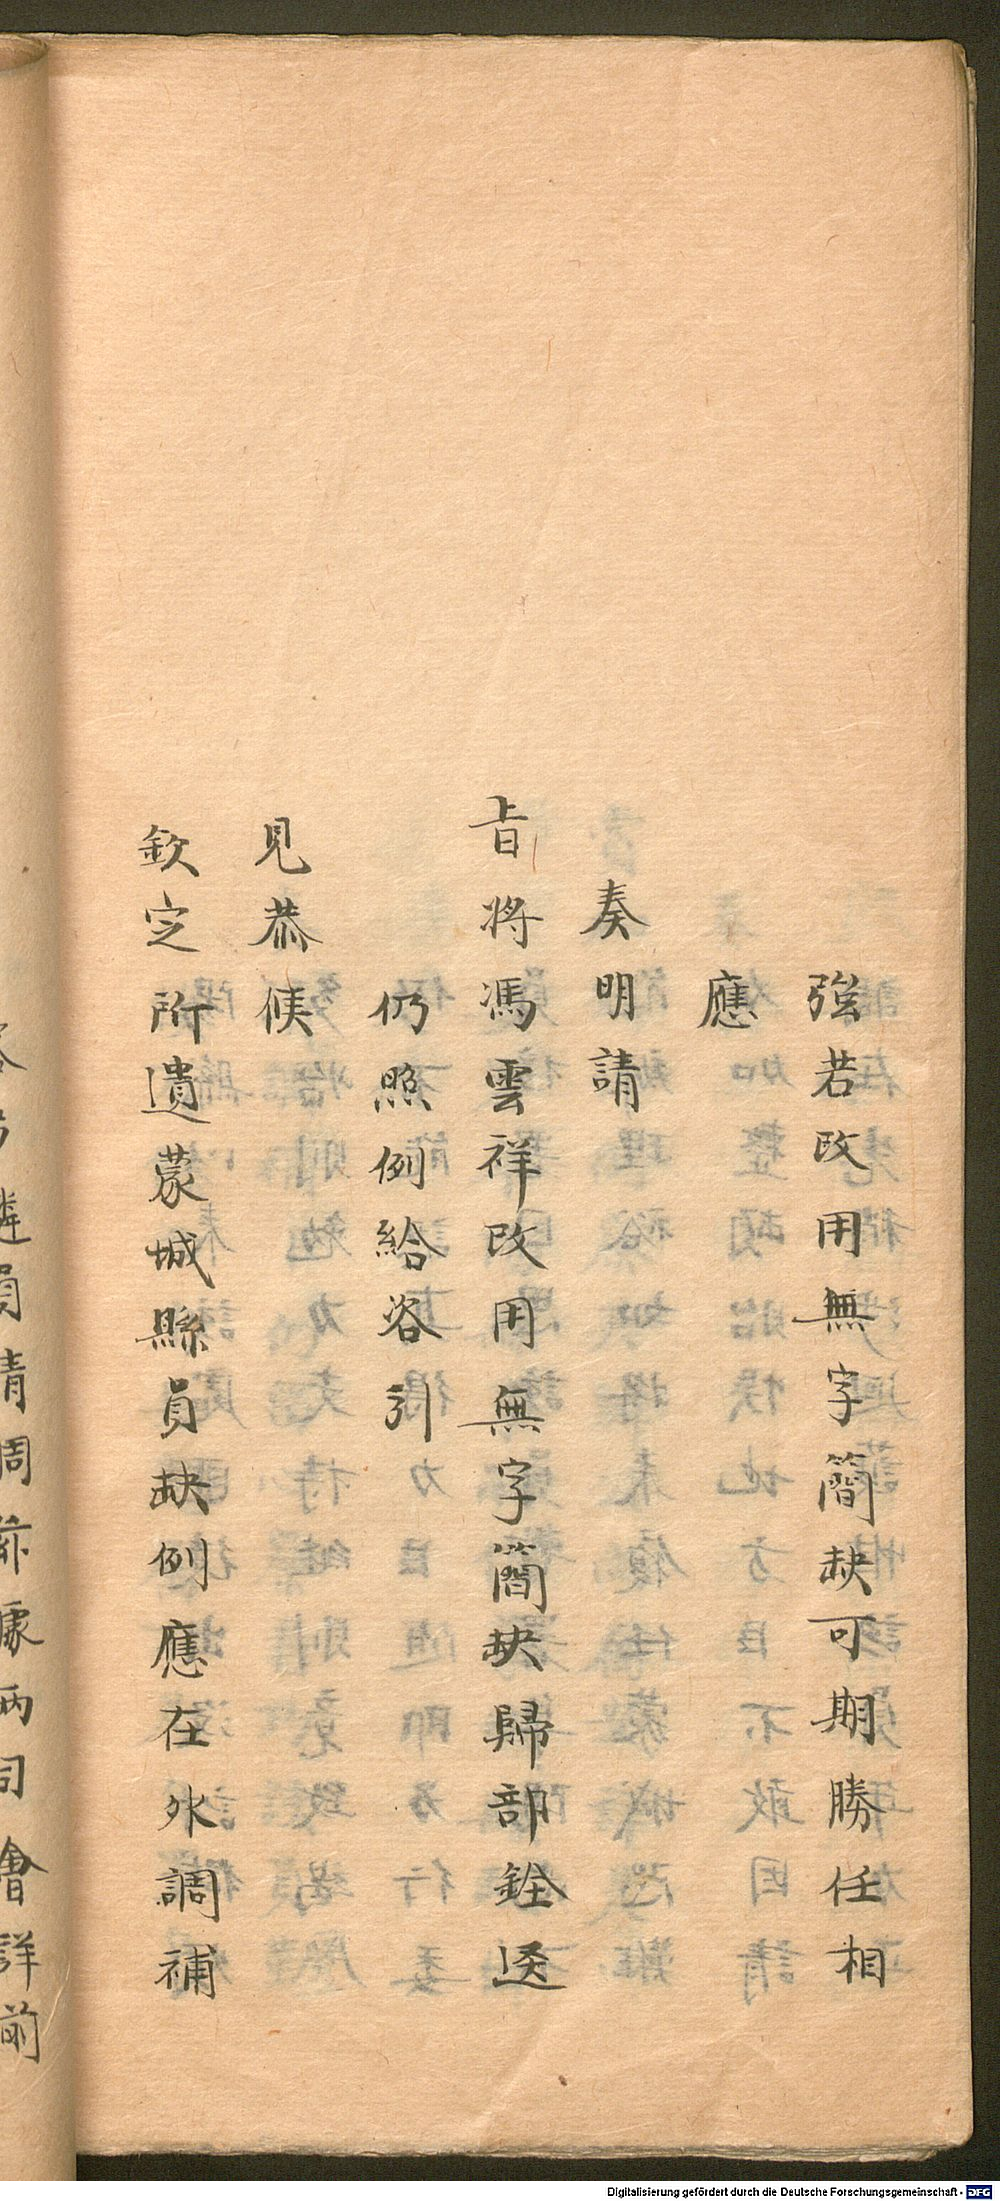 強若改用無字簡缺可期勝任相
應
奏明請
旨將馮雲祥改用無字簡缺歸部銓選
仍照例給咨引
見恭候
欽定所遺蒙城縣員缺例應在外調補
員請周
據兩司會詳前
Digitalisierung gefördert durch die Deutsche Forschungsgemeinschaft - DFG